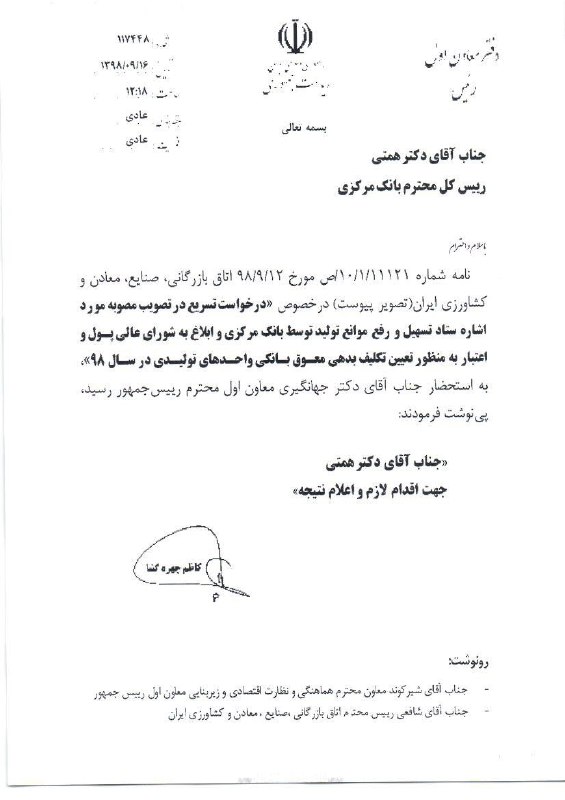 شماره: ۱۱۷۴۴۸
تاریخ: ۱۳۹۸/۰۹/۱۶
ساعت: ۱۲:۱۸
عادی
عادی
جمهوری اسلامی ایران
ریاست جمهوری
دفتر معاون اول
رئیس
بسمه تعالی
جناب آقای دکتر همتی
رییس کل محترم بانک مرکزی
باسلام و احترام
نامه شماره ۱۰/۱/۱۱۱۲۱/ص مورخ ۹۸/۹/۱۲ اتاق بازرگانی، صنایع، معادن و
کشاورزی ایران(تصویر پیوست) درخصوص «درخواست تسریع در تصویب مصوبه مورد
اشاره ستاد تسهیل و رفع موانع تولید توسط بانک مرکزی و ابلاغ به شورای عالی پول و
اعتبار به منظور تعیین تکلیف بدهی معوق بانکی واحدهای تولیدی در سال ۹۸»،
به استحضار جناب آقای دکتر جهانگیری معاون اول محترم رییس‌جمهور رسید،
پی‌نوشت فرمودند:
«جناب آقای دکتر همتی
جهت اقدام لازم و اعلام نتیجه»
کاظم چهره گشا
رونوشت:
- جناب آقای شیرکوند معاون محترم هماهنگی و نظارت اقتصادی و زیربنایی معاون اول رییس جمهور
- جناب آقای شافعی رییس محترم اتاق بازرگانی ،صنایع ، معادن و کشاورزی ایران